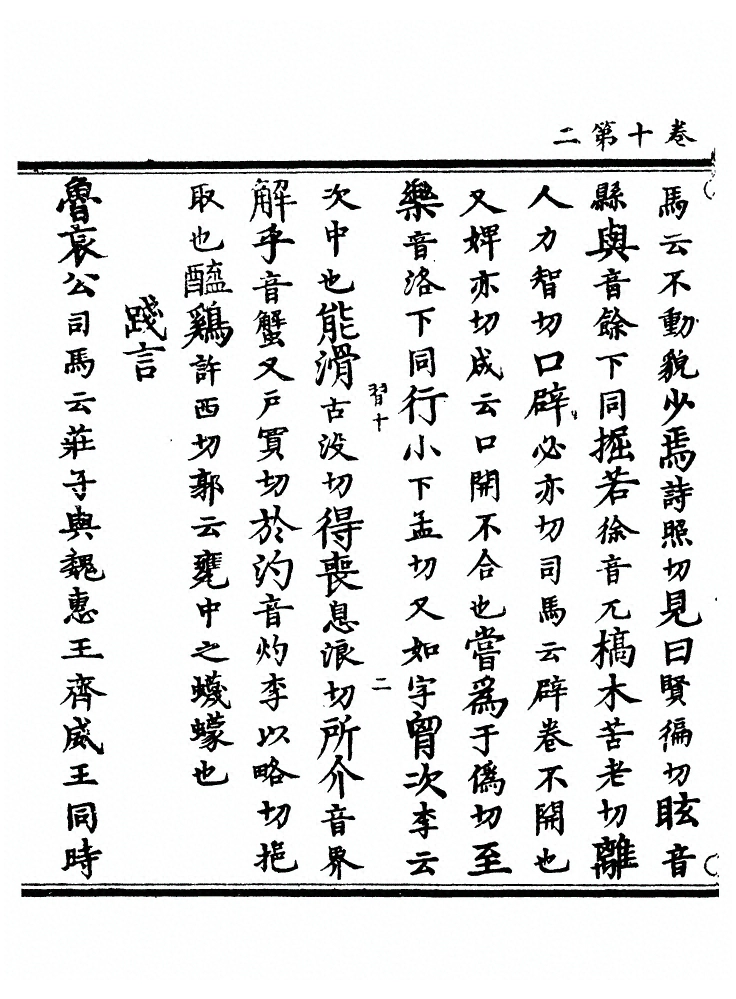 卷十第二
馬云不動貌少焉詩照切見曰賢徧切眩音
縣與音餘下同掘若徐音兀槁木苦老切離
人力智切口辟必亦切司馬云辟卷不開也
又婢亦切成云口開不合也嘗爲于僞切至
樂音洛下同行小下孟切又如字胷次李云
次中也能滑古没切得喪息浪切所介音界
習十
二
解乎音蟹又戸買切於汋音灼李以略切挹
取也醯鷄許西切郭云甕中之蠛蠓也
踐言
魯哀公司馬云莊子與魏惠王齊威王同時